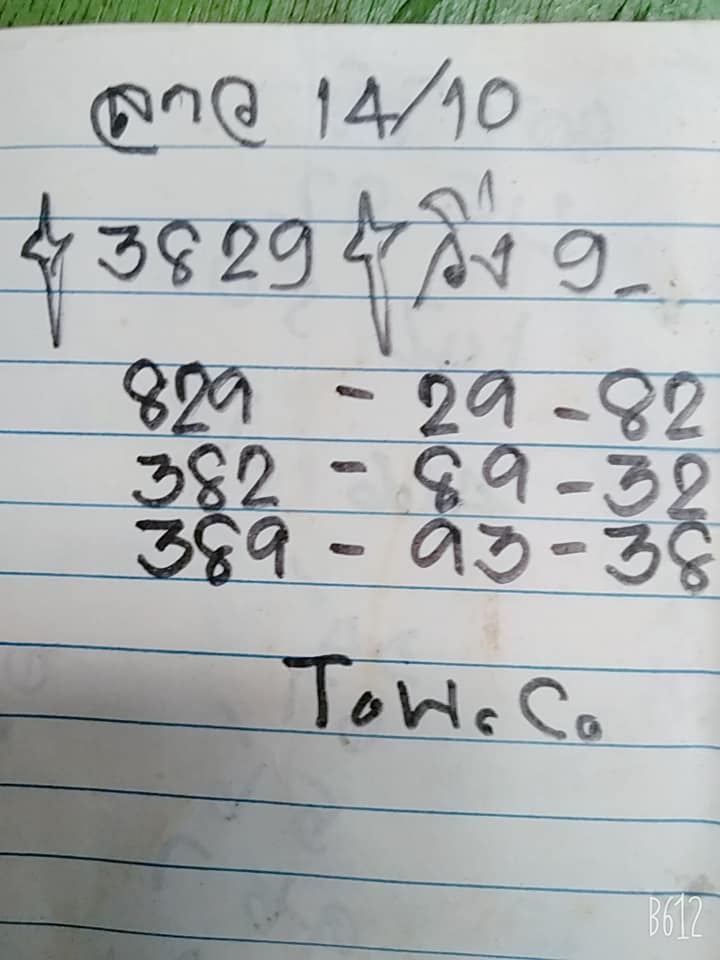 ลาว 14/10
3829 วิ่ง 9-
829 - 29 - 82
382 - 89 - 32
389 - 93 - 38
T.W.C.
B612